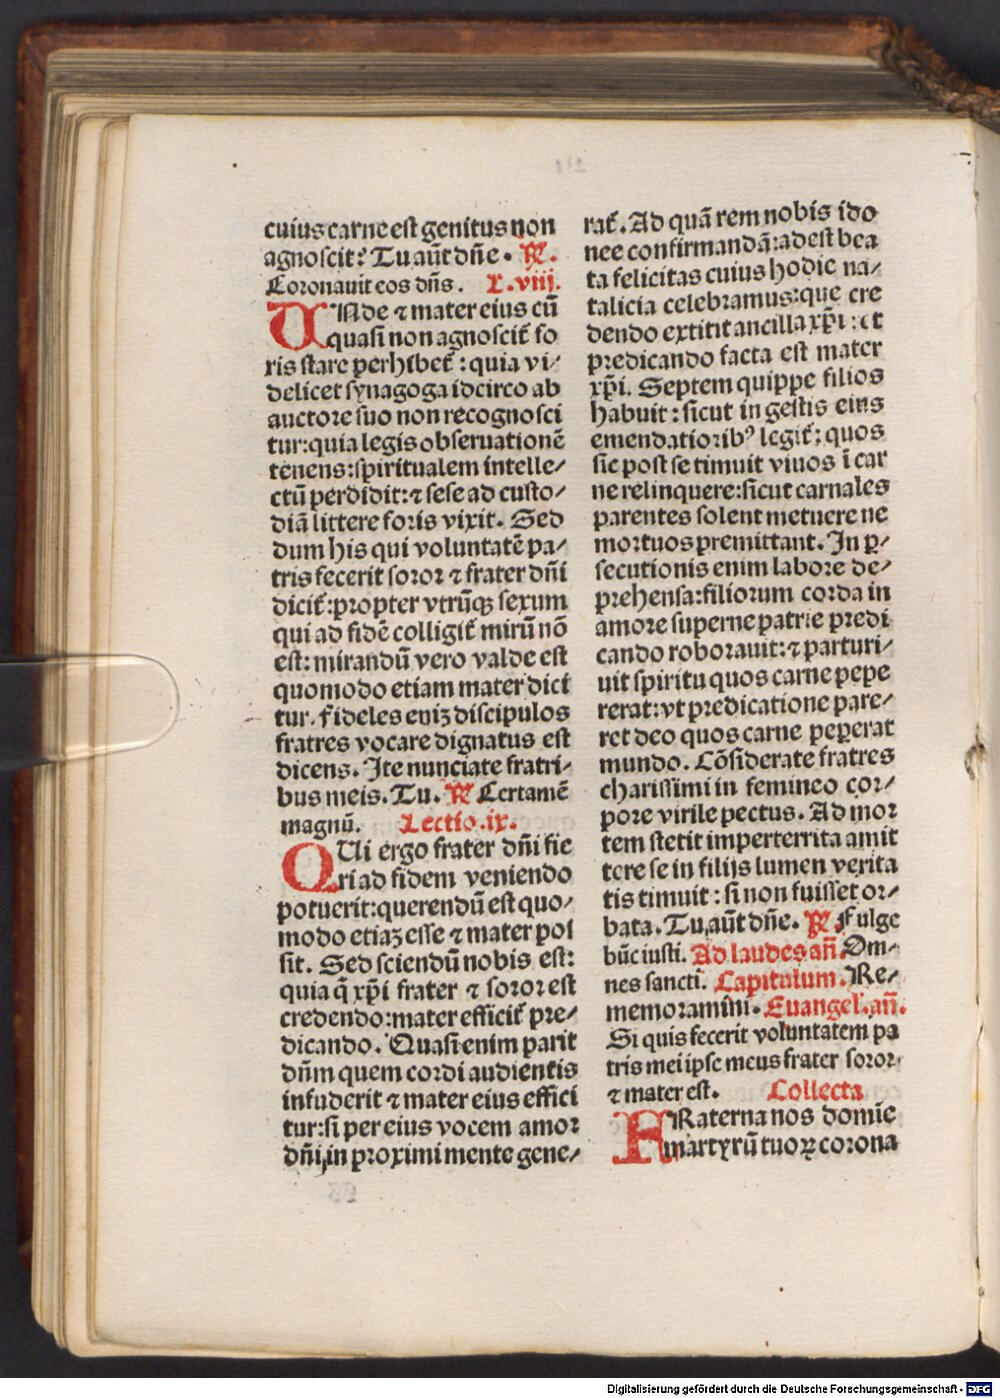 cuius carne est genitus non
agnoscit? Tu aūt dn̄e. ℟.
Coronauit eos dn̄s. L.viij.
UNde ⁊ mater eius cū
quasi non agnoscit̄ fo
ris stare perhibet̄: quia vi⸗
delicet synagoga idcirco ab
auctore suo non recognosci
tur: quia legis obseruationē
tenens: spiritualem intelle⸗
ctū perdidit: ⁊ sese ad custo⸗
diā littere foris vixit. Sed
dum his qui voluntatē pa⸗
tris fecerit soror ⁊ frater dn̄i
dicit̄: propter vtrūqꝫ sexum
qui ad fidē colligit̄ mirū nō
est: mirandū vero valde est
quomodo etiam mater dici
tur. fideles eniꝫ discipulos
fratres vocare dignatus est
dicens. Ite nunciate fratri⸗
bus meis. Tu. ℟ Certamē
magnū. Lectio.ix.
QUi ergo frater dn̄i fie
ri ad fidem veniendo
potuerit: querendū est quo⸗
modo etiaꝫ esse ⁊ mater pos
sit. Sed sciendū nobis est:
quia q̄ xp̄i frater ⁊ soror est
credendo: mater efficit̄ pre⸗
dicando. Quasi enim parit
dn̄m quem cordi audientis
infuderit ⁊ mater eius effici
tur: si per eius vocem amor
dn̄i, in proximi mente gene⸗
rat̄. Ad quā rem nobis ido
nee confirmandā: adest bea
ta felicitas cuius hodie na⸗
talicia celebramus: que cre
dendo extitit ancilla xp̄i: et
predicando facta est mater
xp̄i. Septem quippe filios
habuit: sicut in gestis eius
emendatiorib⁹ legit̄; quos
sic post se timuit viuos ī car
ne relinquere: sicut carnales
parentes solent metuere ne
mortuos premittant. In ꝑ⸗
secutionis enim labore de⸗
prehensa: filiorum corda in
amore superne patrie predi
cando roborauit: ⁊ parturi⸗
uit spiritu quos carne pepe
rerat: vt predicatione pare⸗
ret deo quos carne peperat
mundo. Cōsiderate fratres
charissimi in femineo cor⸗
pore virile pectus. Ad mor
tem stetit imperterrita amit
tere se in filijs lumen verita
tis timuit: si non fuisset or⸗
bata. Tu aūt dn̄e. ℟. Fulge
būt iusti. Ad laudes an̄. Om⸗
nes sancti. Capitulum. Re⸗
memoramini. Euangel̄. an̄.
Si quis fecerit voluntatem pa
tris mei ipse meus frater soror
⁊ mater est. Collecta
FRaterna nos domīe
martyrū tuoꝝ corona
Digitalisierung gefördert durch die Deutsche Forschungsgemeinschaft - DFG